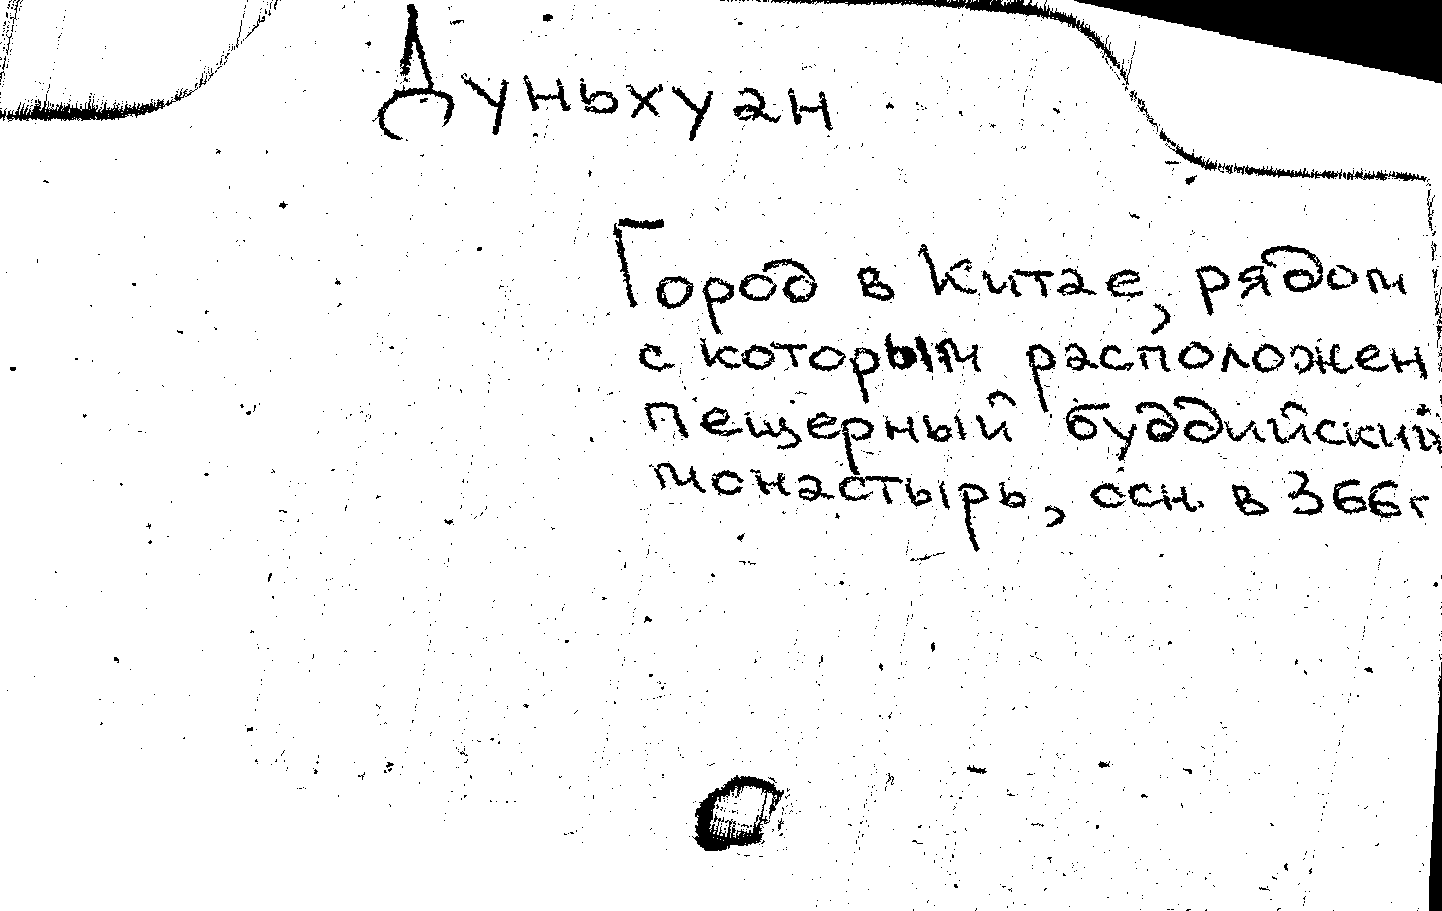 Дуньхуан
Город в Китае, рядом
с которым расположен
пещерный буддийский
монастырь, осн. в 366г